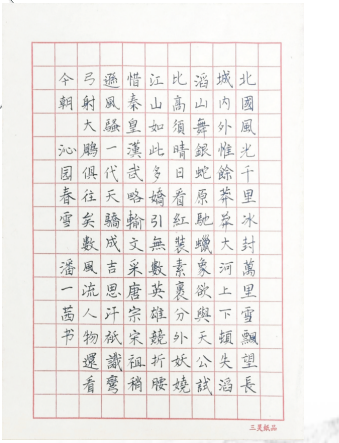 北國風光千里冰封萬里雪飄望長
城内外惟餘莽莽大河上下頓失滔
滔山舞銀蛇原馳蠟象欲與天公試
比高須晴日看紅裝素裹分外妖嬈
江山如此多嬌引無數英雄競折腰
惜秦皇漢武略輸文采唐宗宋祖稍
遜風騷一代天驕成吉思汗祇識彎
弓射大鵰俱往矣數風流人物還看
今朝 沁园春雪 潘一茜书